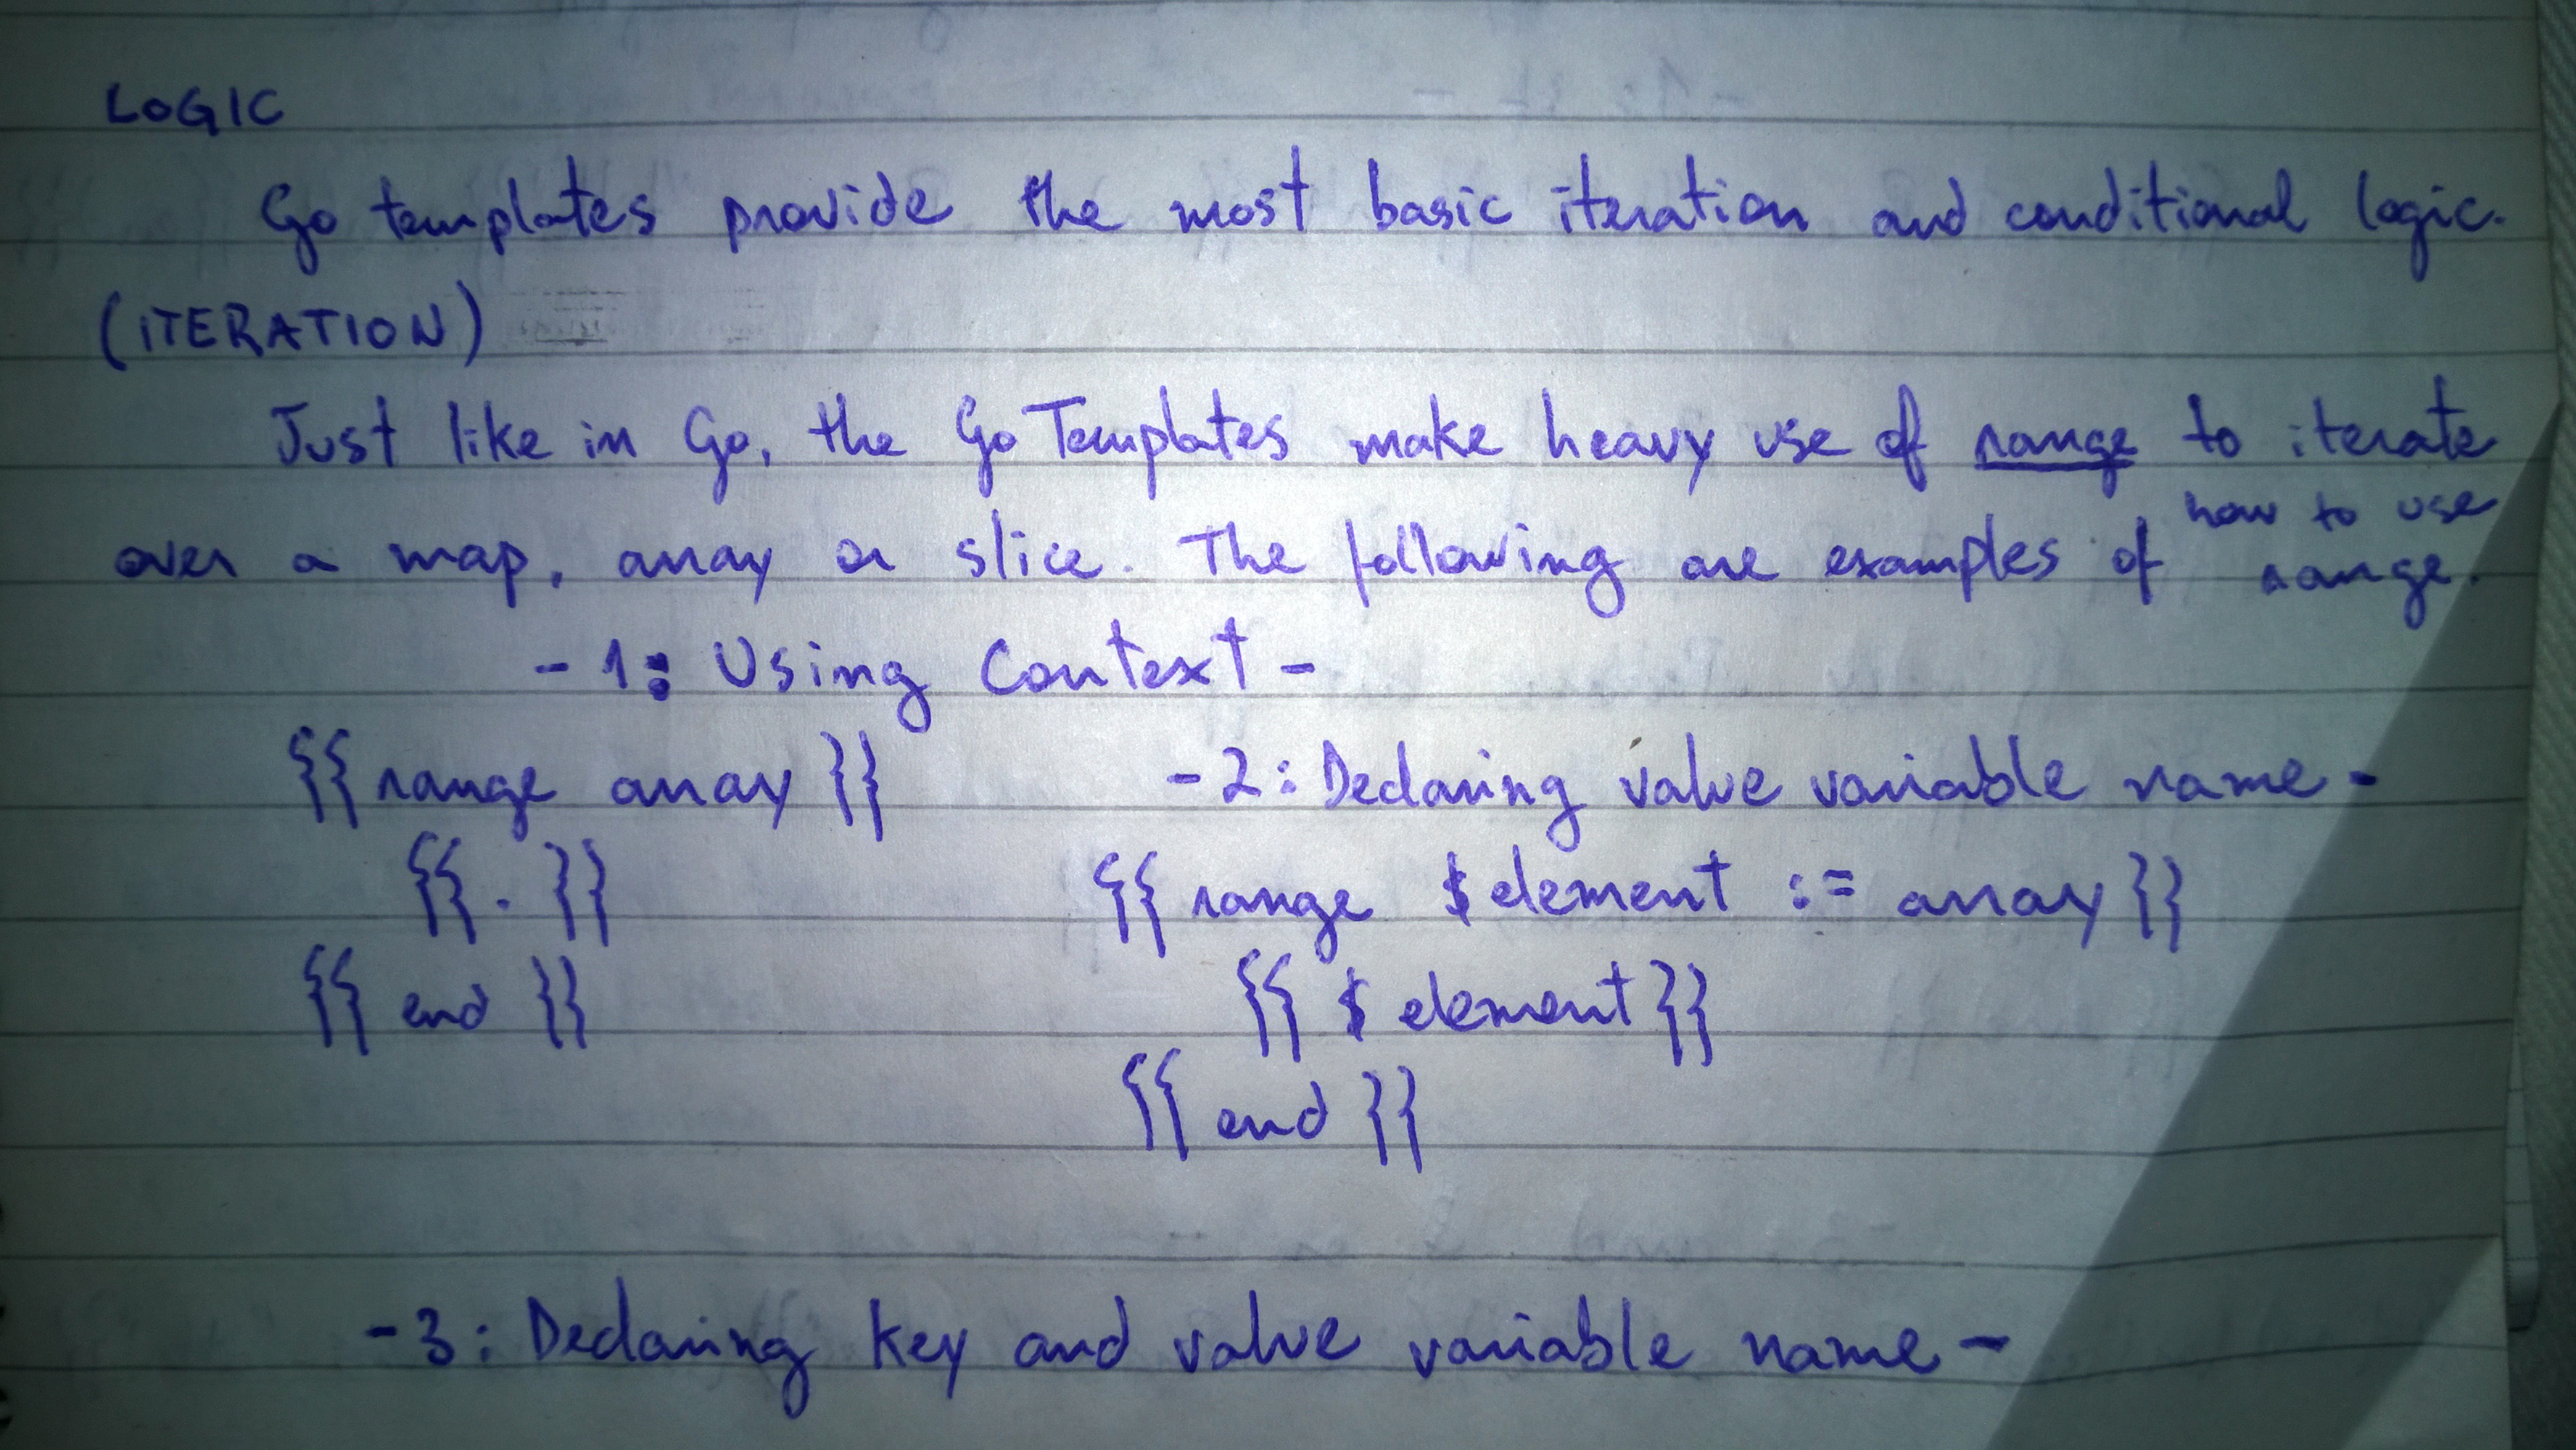 LOGIC
Go templates provide the most basic iteration and conditional logic.
(ITERATION)
Just like in Go, the Go Templates make heavy use of range to iterate
over a map, array or slice. The following are examples of how to use range.
- 1: Using Context -
{{ range array }}
{{ . }}
{{ end }}
- 2: Declaring value variable name -
{{ range $element := array }}
{{ $ element }}
{{ end }}
- 3: Declaring key and value variable name -